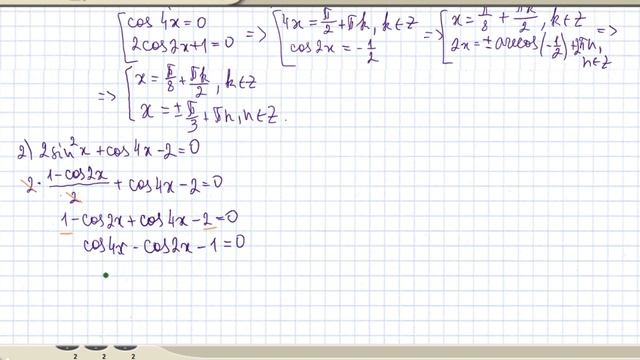 [cos 4x = 0 => [4x = π/2 + πk, k∈Z => [x = π/8 + πk/2, k∈Z =>
[2cos2x+1=0 [cos2x = -1/2 [2x = ± arccos(-1/2)+2πn, n∈Z
=> [x = π/8 + πk/2, k∈Z
[x = ± π/3 + πn, n∈Z.
2) 2sin²x + cos4x - 2 = 0
2 · (1 - cos2x)/2 + cos4x - 2 = 0
1 - cos2x + cos4x - 2 = 0
cos4x - cos2x - 1 = 0
2 2 2